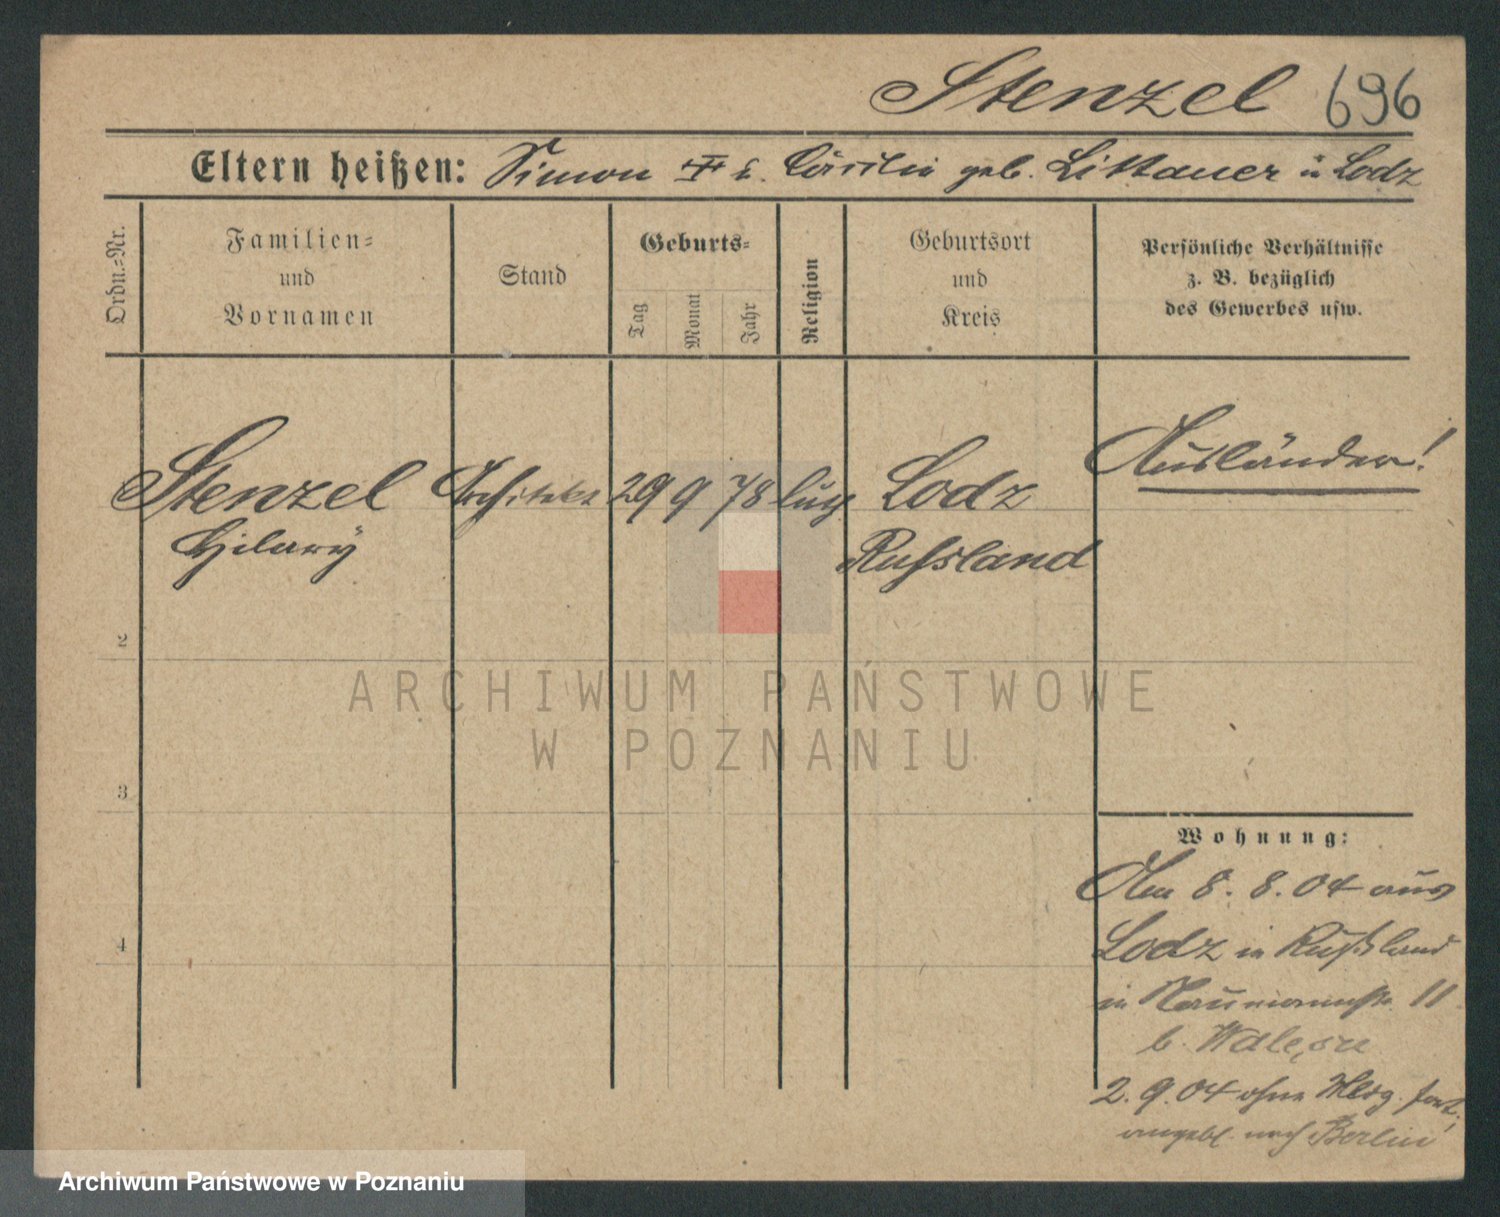 Stenzel 696
Eltern heißen: Simon ✝ u. Cäcilie geb. Littauer in Lodz
Ordn.-Nr.
Familien- und Vornamen
Stand
Geburts-
Tag
Monat
Jahr
Religion
Geburtsort und Kreis
Persönliche Verhältnisse
z. B. bezüglich
des Gewerbes usw.
Stenzel Architekt 29 9 78 Lodz Ausländer!
Hilary Russland
2
3
4
Wohnung:
Am 8. 8. 04 aus
Lodz in Rußland
in 11
b.
2. 9. 04 ohne Mldg. fort,
angebl. nach Berlin
ARCHIWUM PAŃSTWOWE
W POZNANIU
Archiwum Państwowe w Poznaniu